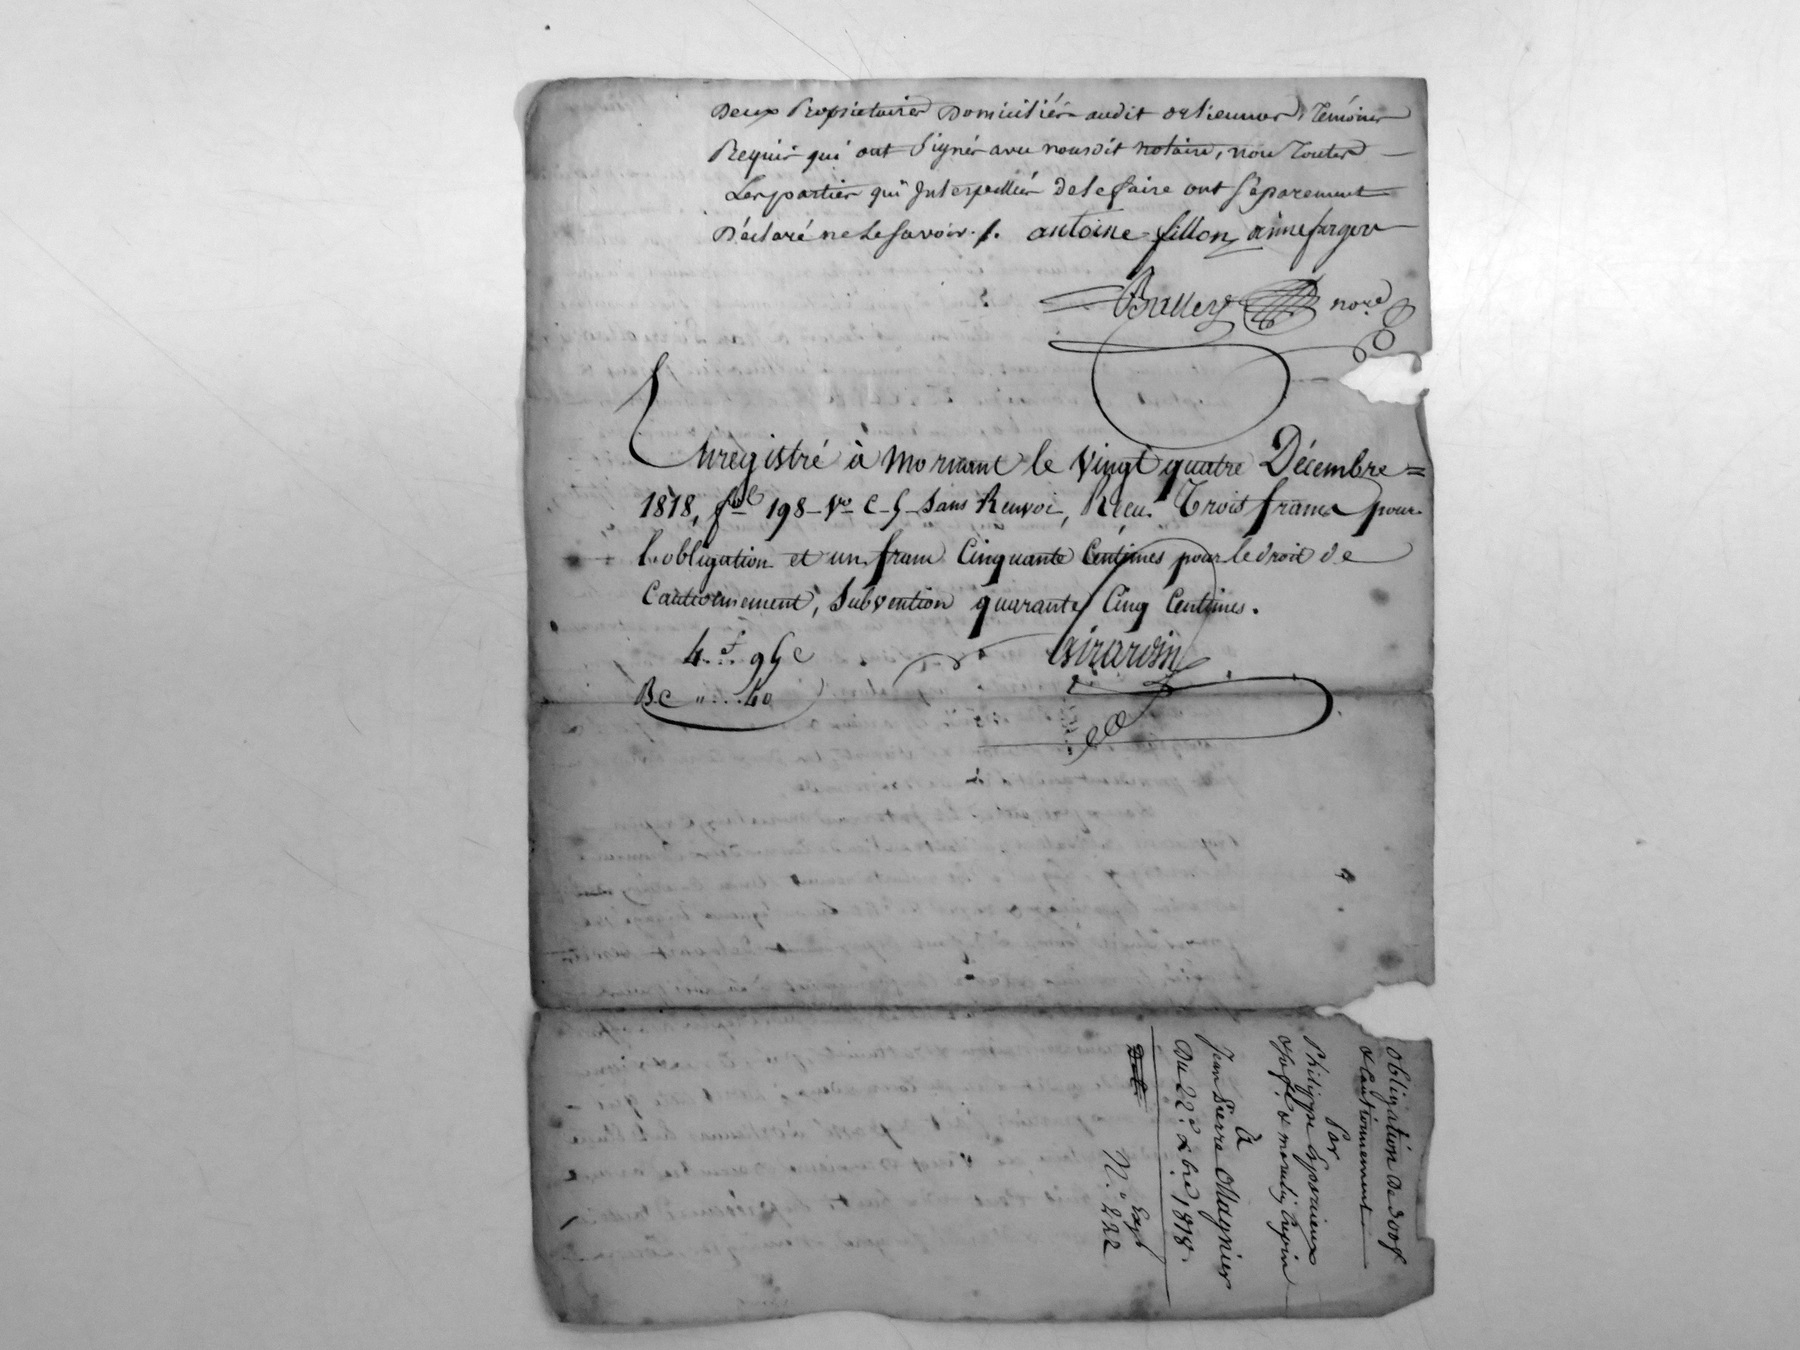 Deux Propriétaires Domiciliés audit orliennas Témoins
Requis qui ont signés avec nous dit notaire, non toutes
Les parties qui Interpellées de le faire ont séparement
Déclaré ne le savoir ./. antoine fillon
nore
Enregistré à Mornant le vingt quatre Décembre =
1818, fol 198 Vo C 5 Sans Renvoi, Recu Trois francs pour
L'obligation et un franc Cinquante Centimes pour le droit de
Cautionnement, Subvention quarante Cinq Centimes.
4.f. 95c
Girardin
B.c ". . . 40
Obligation de 300f
& Cautionnement
Par
Philippe
à
Jean Pierre Magnier
Du 22e Xbre 1818.
Exp
N.o 222